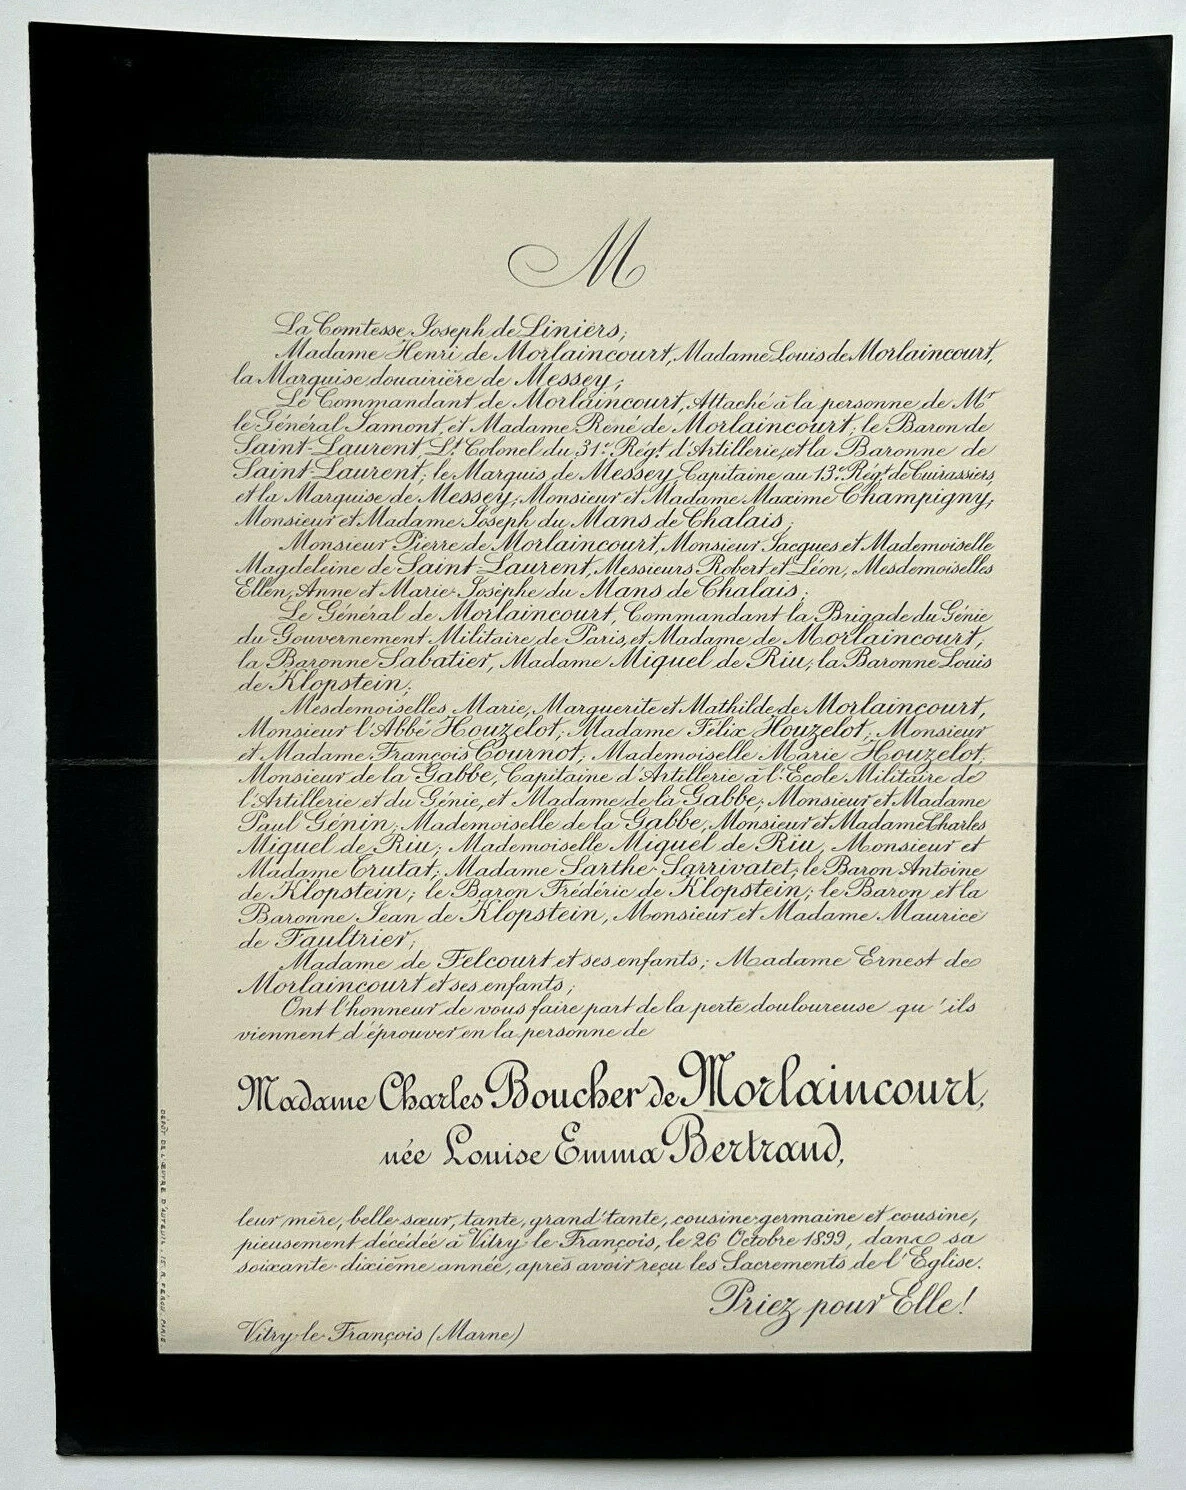 M
La Comtesse Joseph de Liniers;
Madame Henri de Morlaincourt, Madame Louis de Morlaincourt,
la Marquise douairière de Messey;
Le Commandant de Morlaincourt, Attaché à la personne de Mr
le Général Jamont, et Madame René de Morlaincourt; le Baron de
Saint-Laurent, Lt Colonel du 31e Régt d'Artillerie, et la Baronne de
Saint-Laurent; le Marquis de Messey, Capitaine au 13e Régt de Cuirassiers,
et la Marquise de Messey; Monsieur et Madame Maxime Champigny;
Monsieur et Madame Joseph du Mans de Chalais;
Monsieur Pierre de Morlaincourt, Monsieur Jacques et Mademoiselle
Magdeleine de Saint-Laurent, Messieurs Robert et Léon, Mesdemoiselles
Ellen, Anne et Marie-Josèphe du Mans de Chalais;
Le Général de Morlaincourt, Commandant la Brigade du Génie
du Gouvernement Militaire de Paris, et Madame de Morlaincourt;
la Baronne Sabatier, Madame Miquel de Riu; la Baronne Louis
de Klopstein;
Mesdemoiselles Marie, Marguerite et Mathilde de Morlaincourt,
Monsieur l'Abbé Houzelot; Madame Félix Houzelot; Monsieur
et Madame François Cournot; Mademoiselle Marie Houzelot;
Monsieur de la Gabbe, Capitaine d'Artillerie à l'Ecole Militaire de
l'Artillerie et du Génie, et Madame de la Gabbe; Monsieur et Madame
Paul Génin; Mademoiselle de la Gabbe, Monsieur et Madame Charles
Miquel de Riu; Mademoiselle Miquel de Riu, Monsieur et
Madame Trutat; Madame Sarthe-Sarrivatet; le Baron Antoine
de Klopstein; le Baron Frédéric de Klopstein; le Baron et la
Baronne Jean de Klopstein, Monsieur et Madame Maurice
de Faultrier;
Madame de Felcourt et ses enfants; Madame Ernest de
Morlaincourt et ses enfants;
Ont l'honneur de vous faire part de la perte douloureuse qu'ils
viennent d'éprouver en la personne de
Madame Charles Boucher de Morlaincourt,
née Louise Emma Bertrand,
leur mère, belle-sœur, tante, grand'tante, cousine-germaine et cousine,
pieusement décédée à Vitry-le-François, le 26 Octobre 1899, dans sa
soixante-dixième année, après avoir reçu les Sacrements de l'Église.
Priez pour Elle!
Vitry-le-François (Marne)
DÉPÔT DE L'ŒUVRE D'AUTEUIL, 15, R. FÉROU, PARIS